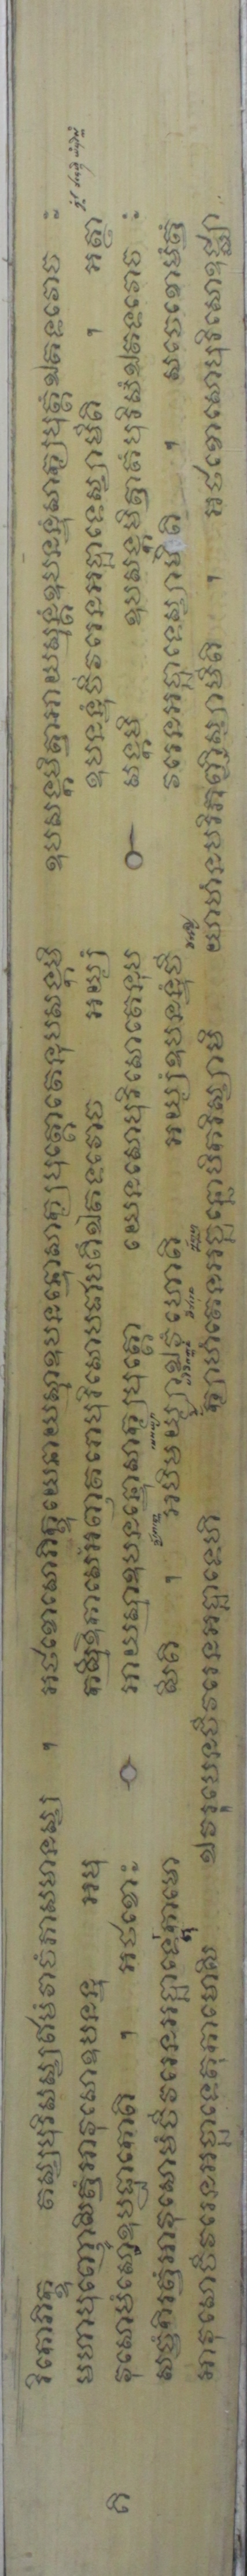 រិកោភិក្ខុ តស្សបុរិសស្សឥមំវាចំភាសមានស្ស ។ អថខោសោភិក្ខុយេនាយស្មាឧបនន្ទោសាក្យបុត្តោតេនុបសង្កមិ ឧបសង្កមិត្វាអាយស្មន្តំឧបនន្ទំសាក្យបុត្តំឯតទវោច ៈ
មហាបុញ្ញោសិត្វំអាវុសោឧបនន្ទ អមុ កស្មិំឱកាសេអញ្ញតរោបុរិសោបជាបតិំឯតទវោច អយ្យំ ឧបនន្ទំចីវរេនអច្ឆាទេស្សាមីតិ ។ អត្ថា
តិ វុសោមំសោឧបដ្ឋាកោតិ ។ អថខោៈ អាយស្មាឧបនន្ទោសាក្យបុត្តោ យេនសោបុរិសោតេនុប សង្កមិ ឧបសង្កមិត្វាតំបុរិសំឯតទវោច ៈ
សច្ចំកិរត្វំអាវុសោមំចីវរេនអច្ឆាទេតុកាមោ សីតិ ។ អបិមយ្យាឯវំហោតិ អយ្យំឧបនន្ទំចី វរេនអច្ឆាទេស្សាមីតិ ។ សចេខោមំត្វំ
អាវុសោចីវរេនអច្ឆាទេតុកាមោសិ ឯវរូបេនចីវរេនអច្ឆាទេហិ ក្យាហំតេនអច្ឆន្នោបិករិស្សាមិ យាហំនបរិភុញ្ជិស្សាមីតិ ។ អថខោសោបុរិសោឧជ្ឈា